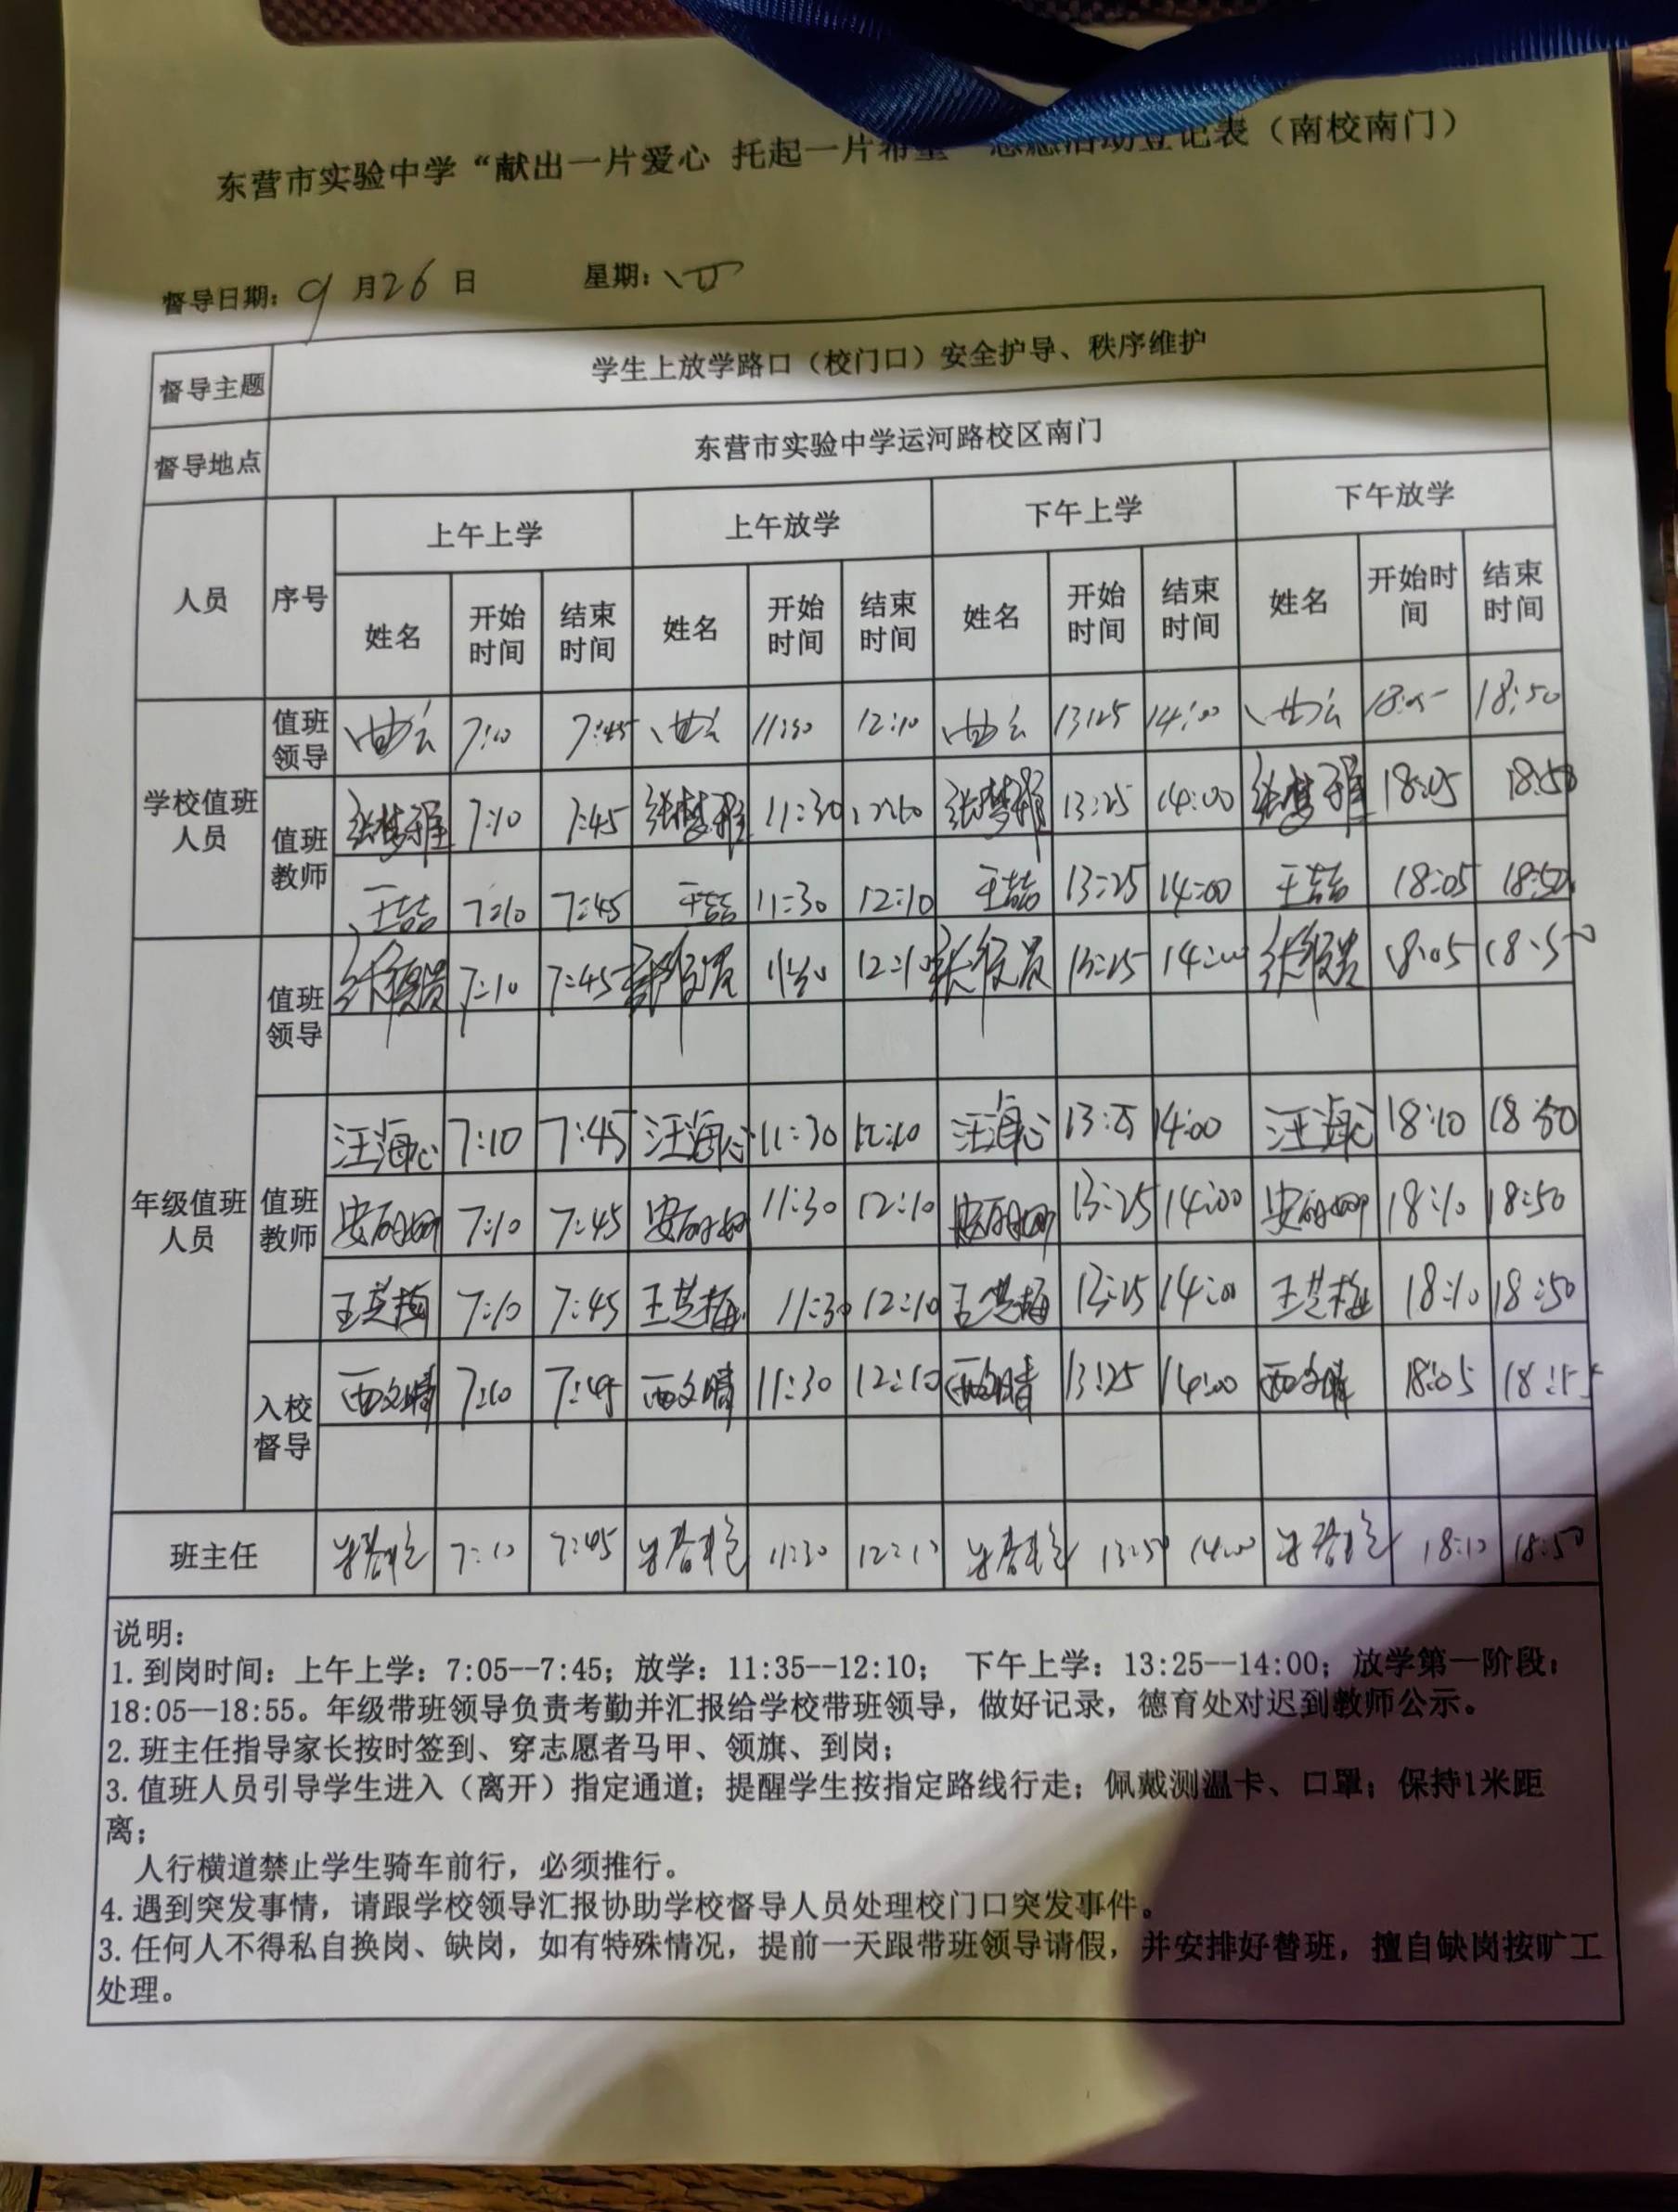 东营市实验中学“献出一片爱心 托起一片希望 活动登记表（南校南门）
督导日期：9月26日 星期：四
督导主题 学生上放学路口（校门口）安全护导、秩序维护
督导地点 东营市实验中学运河路校区南门
人员 序号 上午上学 上午放学 下午上学 下午放学
姓名 开始时间 结束时间 姓名 开始时间 结束时间 姓名 开始时间 结束时间 姓名 开始时间 结束时间
学校值班人员 值班领导 7:10 7:45 11:30 12:10 13:25 14:00 18:05 18:50
值班教师 张梦雅 7:10 7:45 张梦雅 11:30 12:10 张梦雅 13:25 14:00 张梦雅 18:05 18:50
王喆 7:10 7:45 王喆 11:30 12:10 王喆 13:25 14:00 王喆 18:05 18:50
年级值班人员 值班领导 7:10 7:45 11:30 12:10 13:25 14:00 18:05 18:50
值班教师 汪海心 7:10 7:45 汪海心 11:30 12:10 汪海心 13:25 14:00 汪海心 18:10 18:50
7:10 7:45 11:30 12:10 13:25 14:00 18:10 18:50
王芝梅 7:10 7:45 王芝梅 11:30 12:10 王芝梅 13:25 14:00 王芝梅 18:10 18:50
入校督导 西文晴 7:10 7:45 西文晴 11:30 12:10 西文晴 13:25 14:00 西文晴 18:05
班主任 7:10 7:45 11:30 12:10 14:00 18:10 18:50
说明：
1.到岗时间：上午上学：7:05--7:45；放学：11:35--12:10； 下午上学：13:25--14:00；放学第一阶段：
18:05--18:55。年级带班领导负责考勤并汇报给学校带班领导，做好记录，德育处对迟到教师公示。
2.班主任指导家长按时签到、穿志愿者马甲、领旗、到岗；
3.值班人员引导学生进入（离开）指定通道；提醒学生按指定路线行走；佩戴测温卡、口罩；保持1米距
离；
人行横道禁止学生骑车前行，必须推行。
4.遇到突发事情，请跟学校领导汇报协助学校督导人员处理校门口突发事件。
3.任何人不得私自换岗、缺岗，如有特殊情况，提前一天跟带班领导请假，并安排好替班，擅自缺岗按旷工
处理。